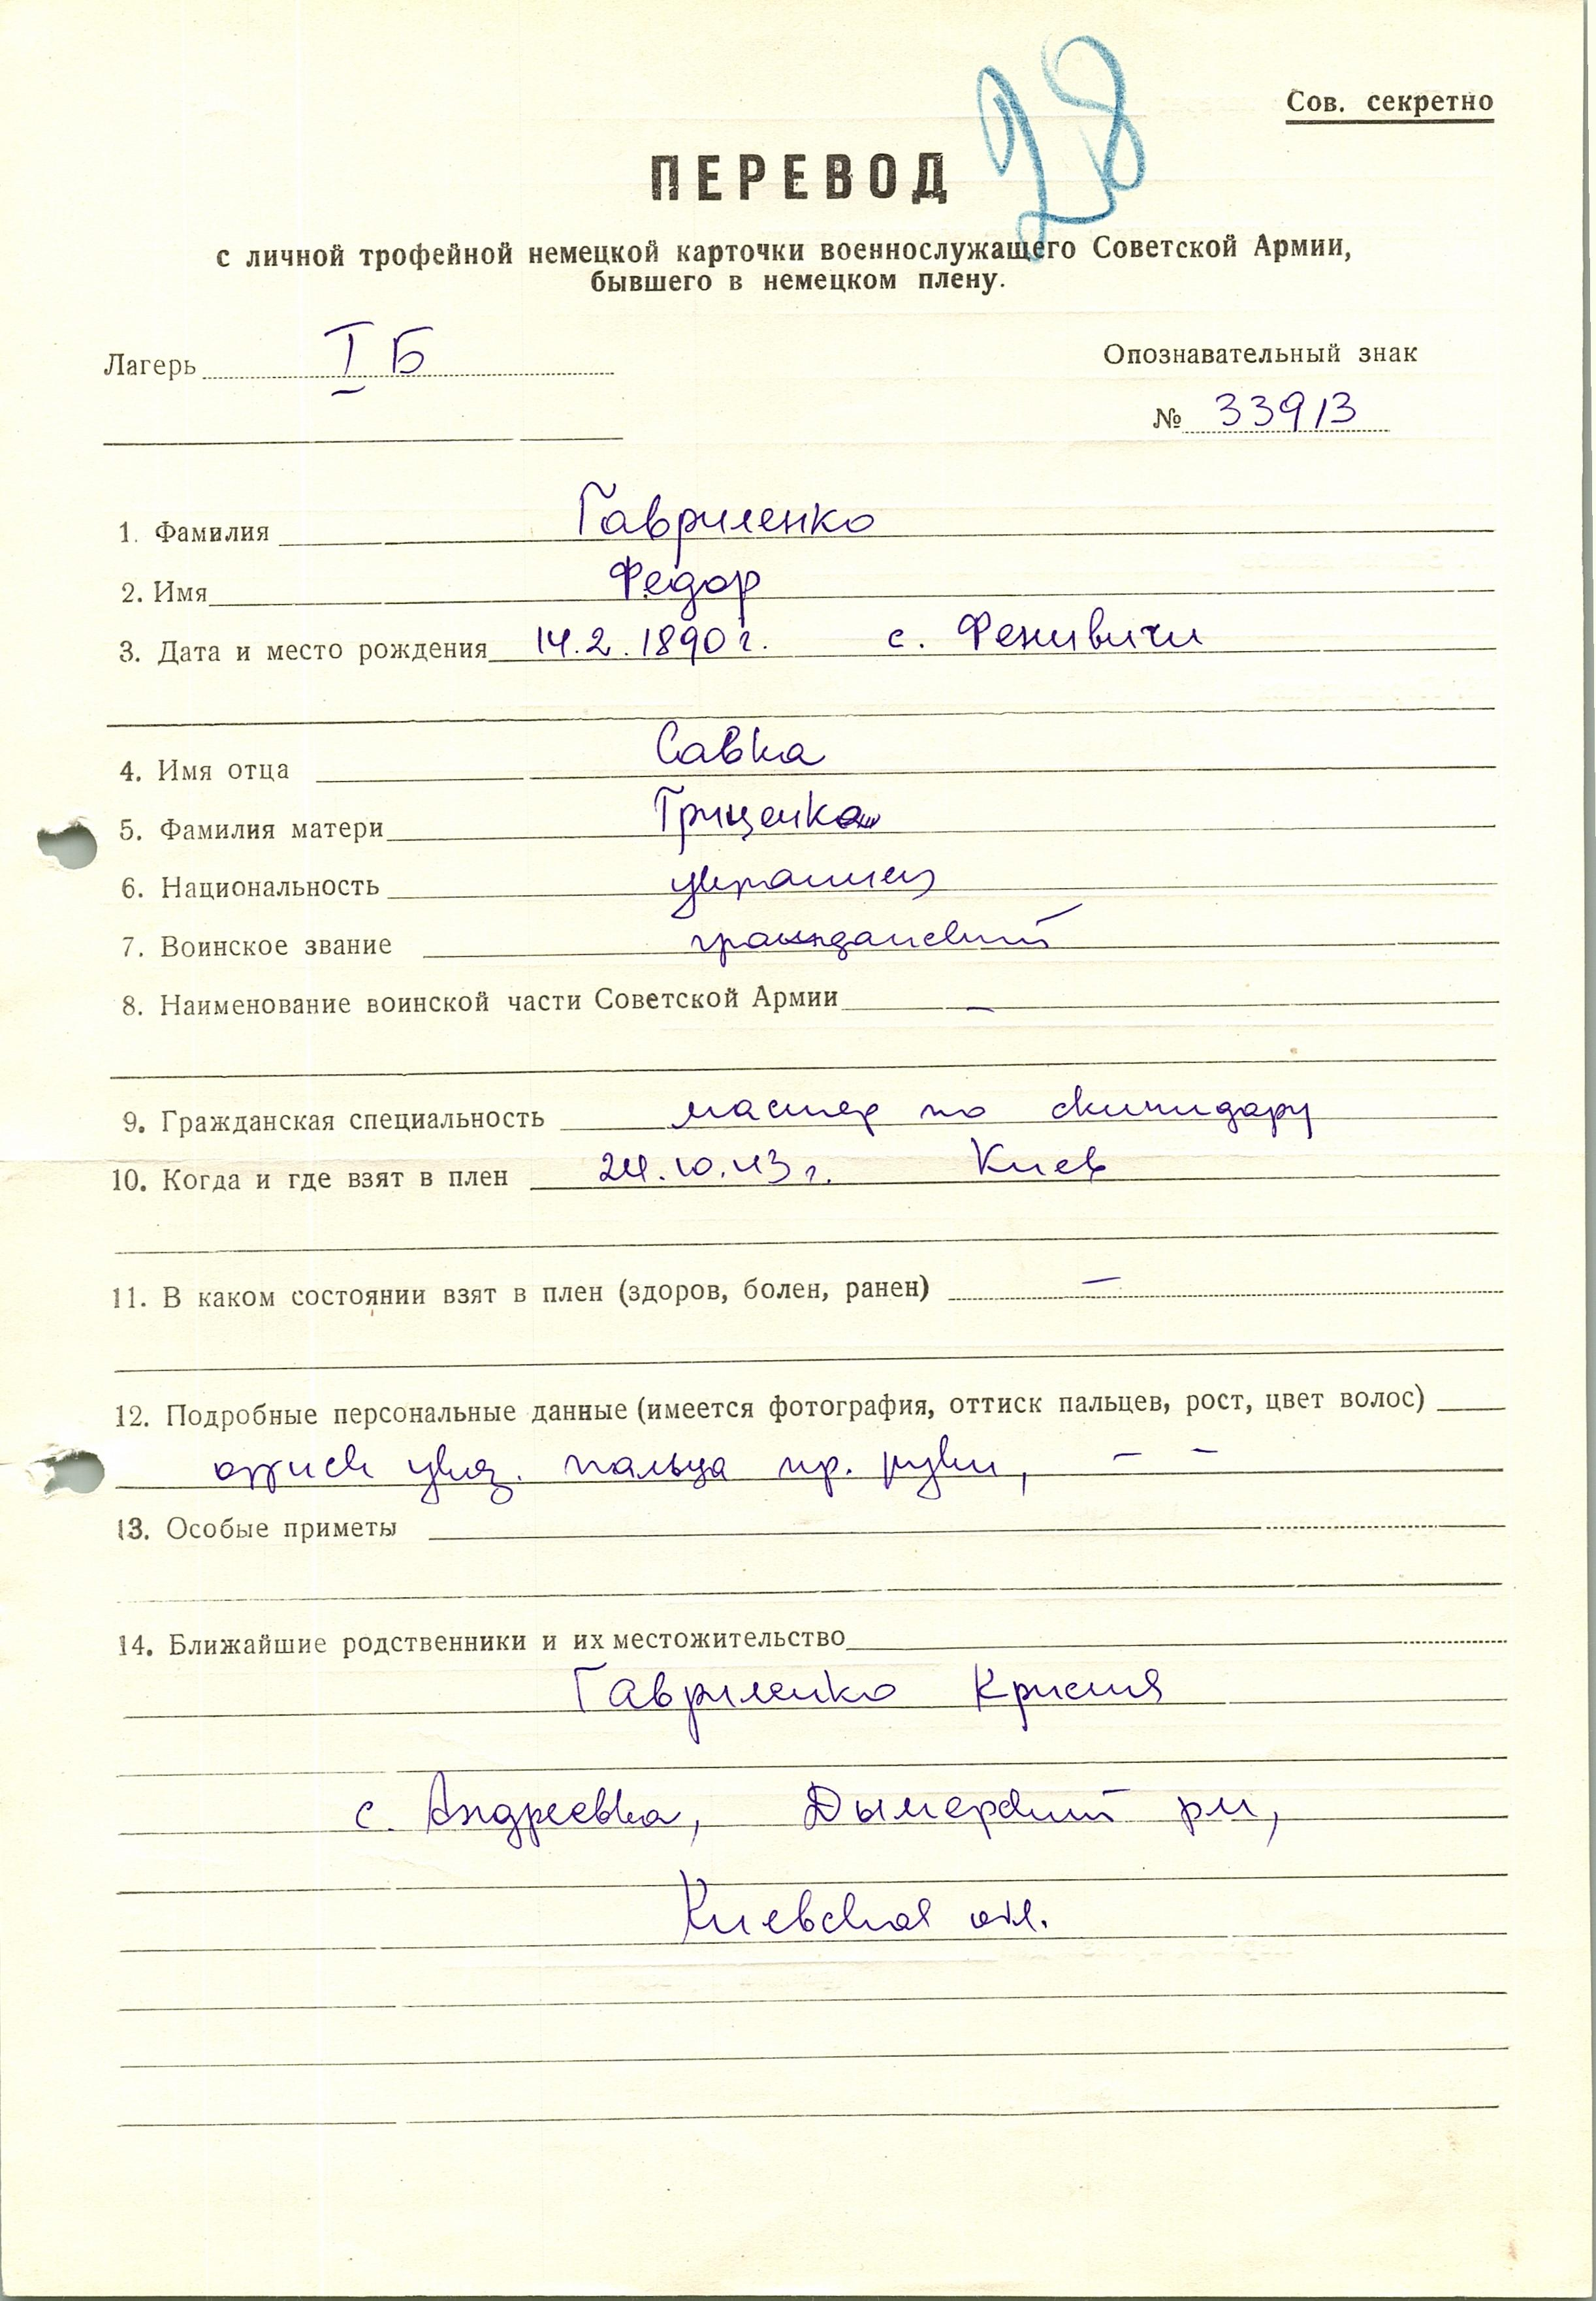 28
Сов. секретно
ПЕРЕВОД
с личной трофейной немецкой карточки военнослужащего Советской Армии,
бывшего в немецком плену.
Лагерь I Б
Опознавательный знак
№ 33913
1. Фамилия Гавриленко
2. Имя Федор
3. Дата и место рождения 14.2.1890 г. с. Фенивичи
4. Имя отца Савка
5. Фамилия матери Гриценко
6. Национальность украинец
7. Воинское звание гражданский
8. Наименование воинской части Советской Армии —
9. Гражданская специальность мастер по скипидару
10. Когда и где взят в плен 24.10.43 г. Киев
11. В каком состоянии взят в плен (здоров, болен, ранен) —
12. Подробные персональные данные (имеется фотография, оттиск пальцев, рост, цвет волос)
оттиск указ. пальца пр. руки, — —
13. Особые приметы
14. Ближайшие родственники и их местожительство
Гавриленко
с. Андреевка, Дымерский р-н,
Киевская обл.